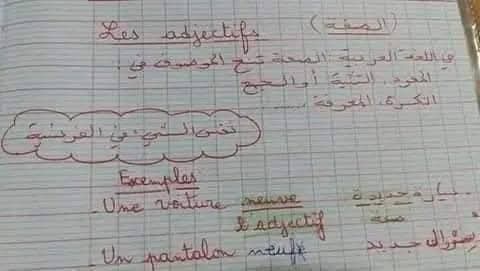 Les adjectifs (الصفة)
في اللغة العربية الصفة تتبع الموصوف في :
المفرد، التثنية أو الجمع
النكرة، المعرفة ......
نفس الشيء في الفرنسية
Exemples
- Une voiture neuve سيارة جديدة
l'adjectif صفة
- Un pantalon neuf سروال جديد